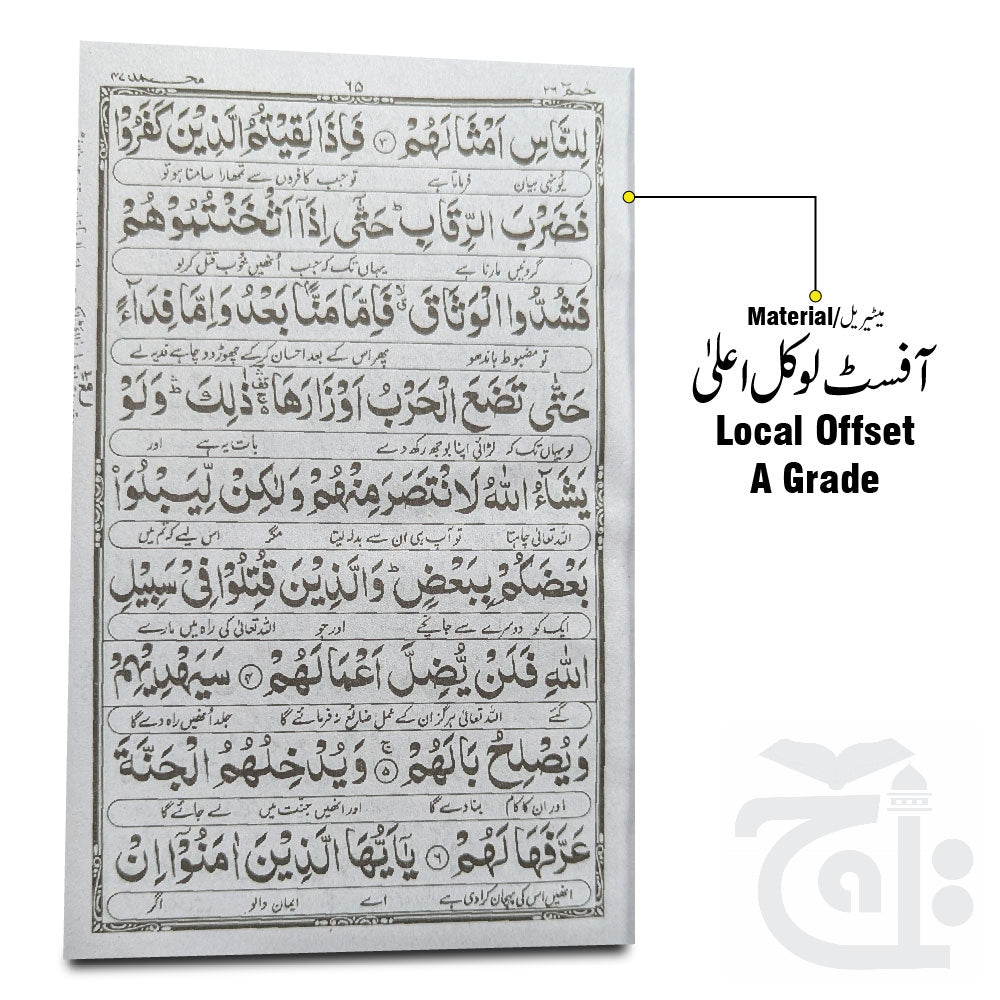 حٰمٓ ۲۶ ۶۵ محمد ۴۷
لِلنَّاسِ اَمْثَالَهُمْ ۳ فَاِذَا لَقِيْتُمُ الَّذِيْنَ كَفَرُوْا
یونہی بیان فرماتا ہے تو جب کافروں سے تمھارا سامنا ہو تو
فَضَرْبَ الرِّقَابِ ؕ حَتّٰۤى اِذَاۤ اَثْخَنْتُمُوْهُمْ
گردنیں مارنا ہے یہاں تک کہ جب اُنھیں خوب قتل کر لو
فَشُدُّوا الْوَثَاقَ ۙ فَاِمَّا مَنًّۢا بَعْدُ وَاِمَّا فِدَآءً
تو مضبوط باندھو پھر اس کے بعد احسان کر کے چھوڑ دو چاہے فدیہ لے
حَتّٰى تَضَعَ الْحَرْبُ اَوْزَارَهَا ذٰلِكَ ؕ وَلَوْ
لو یہاں تک کہ لڑائی اپنا بوجھ رکھ دے بات یہ ہے اور
يَشَآءُ اللّٰهُ لَانْتَصَرَ مِنْهُمْ وَلٰكِنْ لِّيَبْلُوَا۟
اللہ تعالیٰ چاہتا تو آپ ہی ان سے بدلہ لیتا مگر اس لیے کہ تم میں
بَعْضَكُمْ بِبَعْضٍ ؕ وَالَّذِيْنَ قُتِلُوْا فِيْ سَبِيْلِ
ایک کو دوسرے سے جانچے اور جو اللہ تعالیٰ کی راہ میں مارے
اللّٰهِ فَلَنْ يُّضِلَّ اَعْمَالَهُمْ ۴ سَيَهْدِيْهِمْ
گئے اللہ تعالیٰ ہرگز ان کے عمل ضائع نہ فرمائے گا جلد اُنھیں راہ دے گا
وَيُصْلِحُ بَالَهُمْ ۵ ۚ وَيُدْخِلُهُمُ الْجَنَّةَ
اور ان کا کام بنا دے گا اور انھیں جنت میں لے جائے گا
عَرَّفَهَا لَهُمْ ۶ يٰۤاَيُّهَا الَّذِيْنَ اٰمَنُوْۤا اِنْ
انھیں اس کی پہچان کرا دی ہے اے ایمان والو اگر
Material/میٹیریل
آفسٹ لوکل اعلیٰ
Local Offset
A Grade